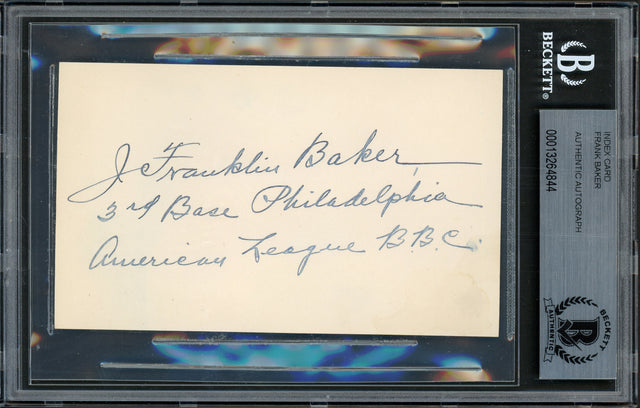 J. Franklin Baker
3rd Base Philadelphia
American League B.B.C.
B
BECKETT®
INDEX CARD
FRANK BAKER
AUTHENTIC AUTOGRAPH
00013264844
BECKETT
AUTHENTIC